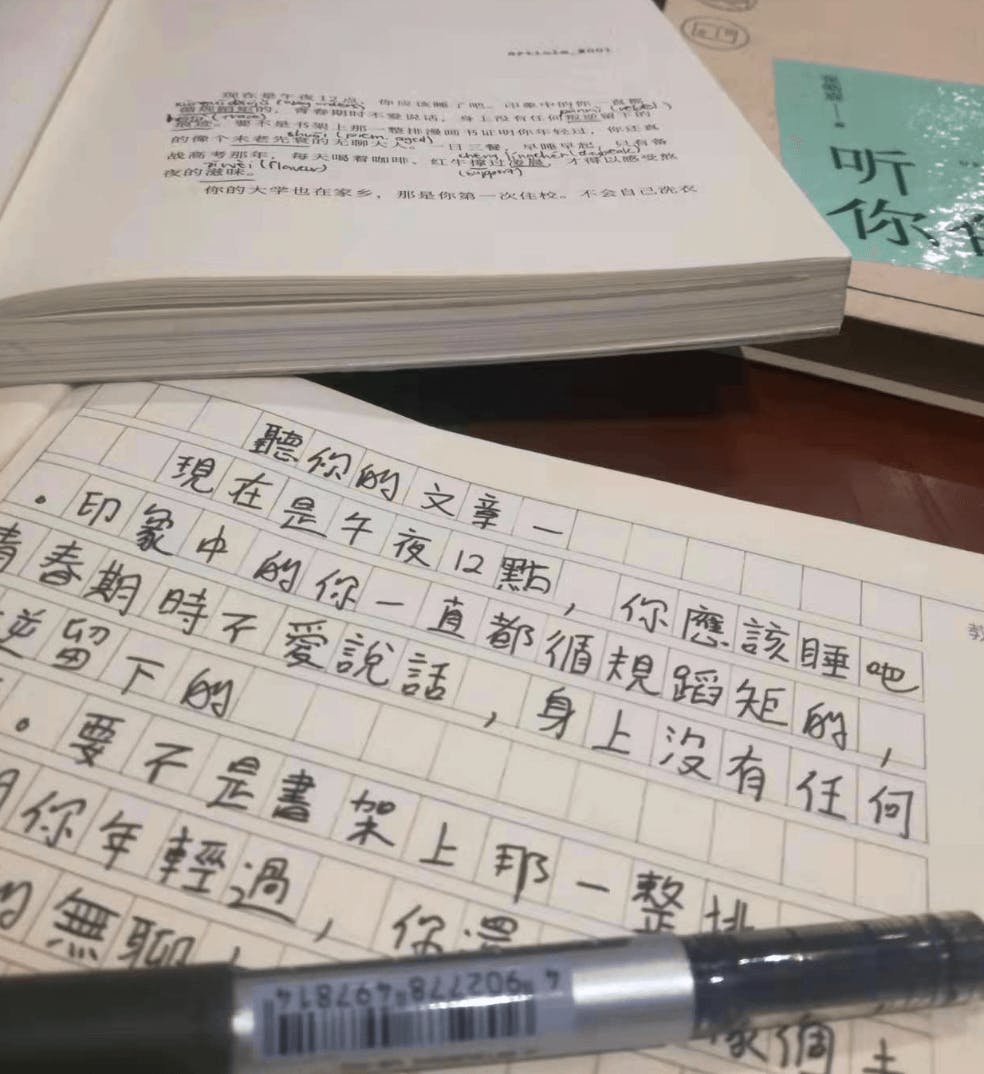 现在是午夜12点，你应该睡了吧。印象中的你，一直都
循规蹈矩的，青春期时不爱说话，身上没有任何叛逆留下的
痕迹。要不是书架上那一整排漫画书证明你年轻过，你还真
的像个未老先衰的无聊大人。一日三餐，早睡早起，只有备
战高考那年，每天喝着咖啡、红牛撑过凌晨，才得以感受熬
夜的滋味。
你的大学也在家乡，那是你第一次住校。不会自己洗衣
(rebel)
(trace)
shuāi (poem. aged)
zīwèi (flavour)
(support)
听
你
聽你的文章一
現在是午夜12點，你應該睡吧
。印象中的你一直都循規蹈矩的，
青春期時不愛說話，身上沒有任何
逆留下的
。要不是書架上那一整排
你年輕過，你還
的無聊，
像個
4 902778 497814